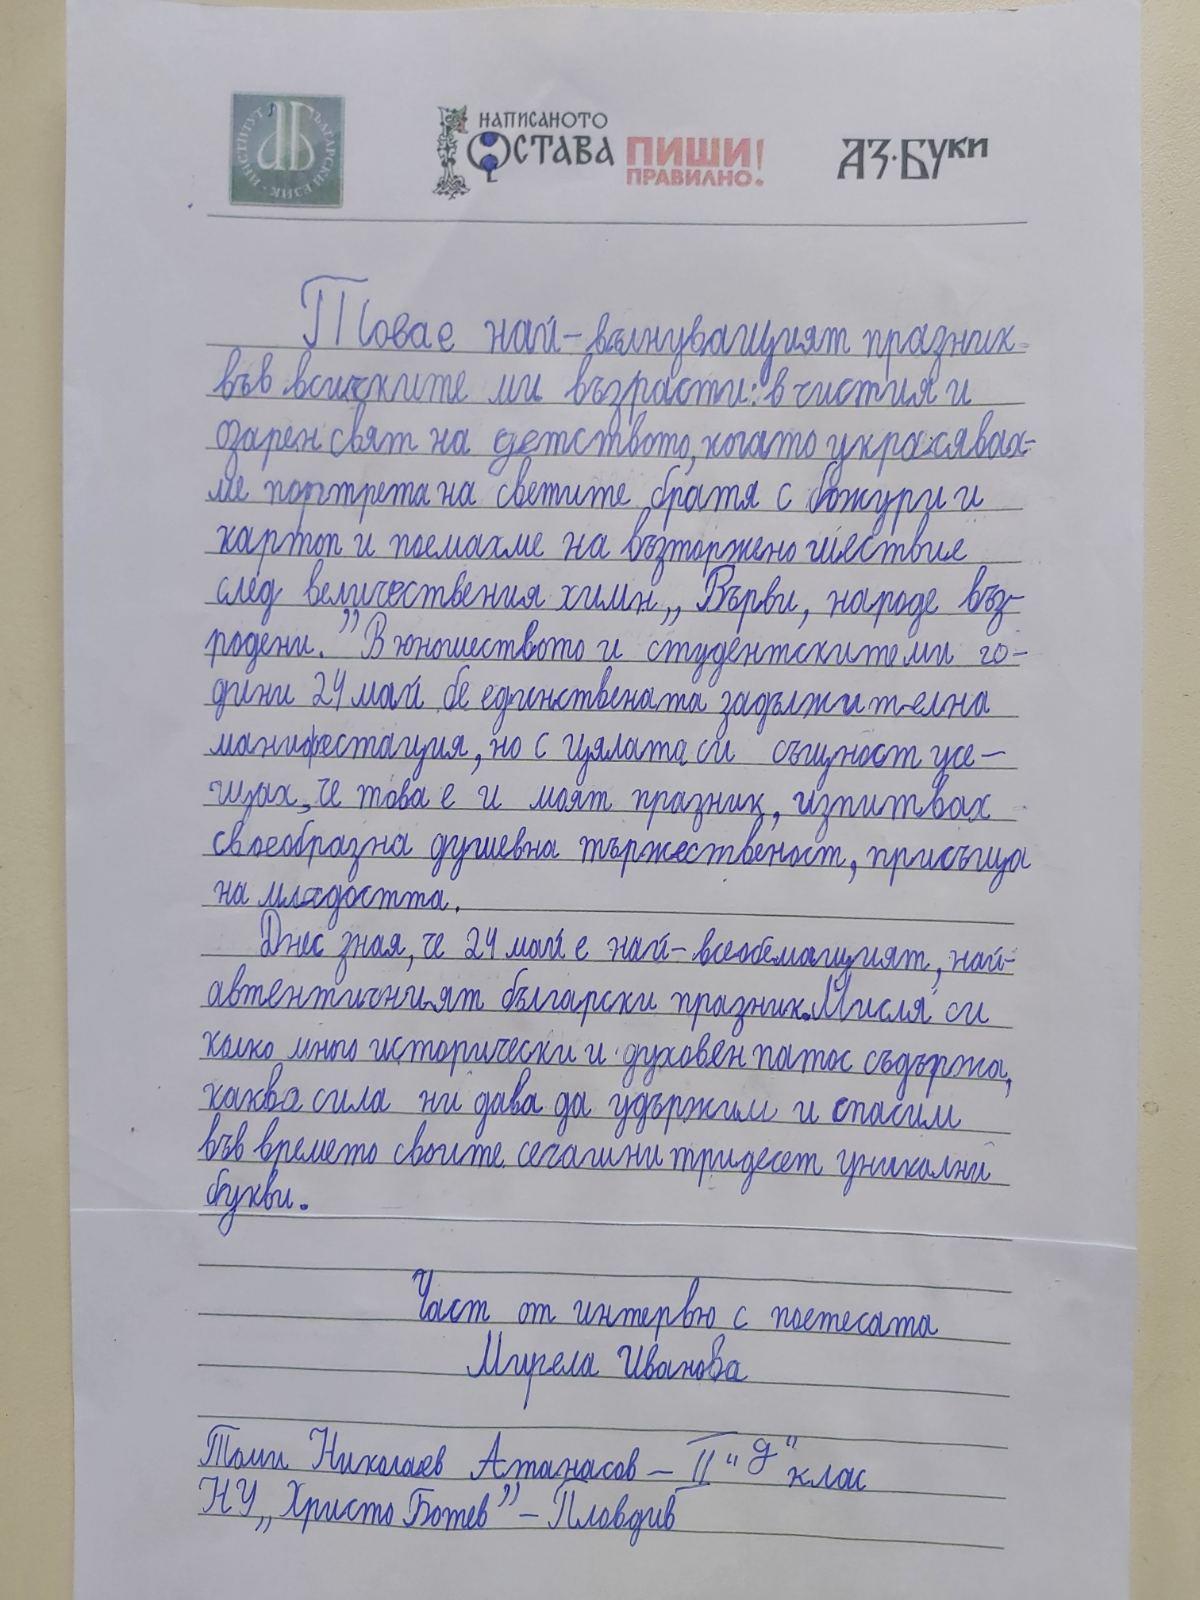 ИНСТИТУТ БЪЛГАРСКИ ЕЗИК
НАПИСАНОТО
ОСТАВА
ПИШИ!
ПРАВИЛНО!
АЗ·БУКИ
Това е най-вълнуващият празник
във всичките ми възрасти: в чистия и
озарен свят на детството, когато украсявах-
ме портрета на светите братя с божури и
картоп и поемахме на възторжено шествие
след величествения химн „Върви, народе въз-
родени." В юношеството и студентските ми го-
дини 24 май бе единствената задължителна
манифестация, но с цялата си същност усе-
щах, че това е и моят празник, изпитвах
своеобразна душевна тържественост, присъща
на младостта.
Днес зная, че 24 май е най-всеобемащият, най-
автентичният български празник. Мисля си
колко много исторически и духовен патос съдържа,
каква сила ни дава да удържим и спасим
във времето своите сегашни тридесет уникални
букви.
Част от интервю с поетесата
Мирела Иванова
Томи Николаев Атанасов – II "д" клас
НУ „Христо Ботев" – Пловдив